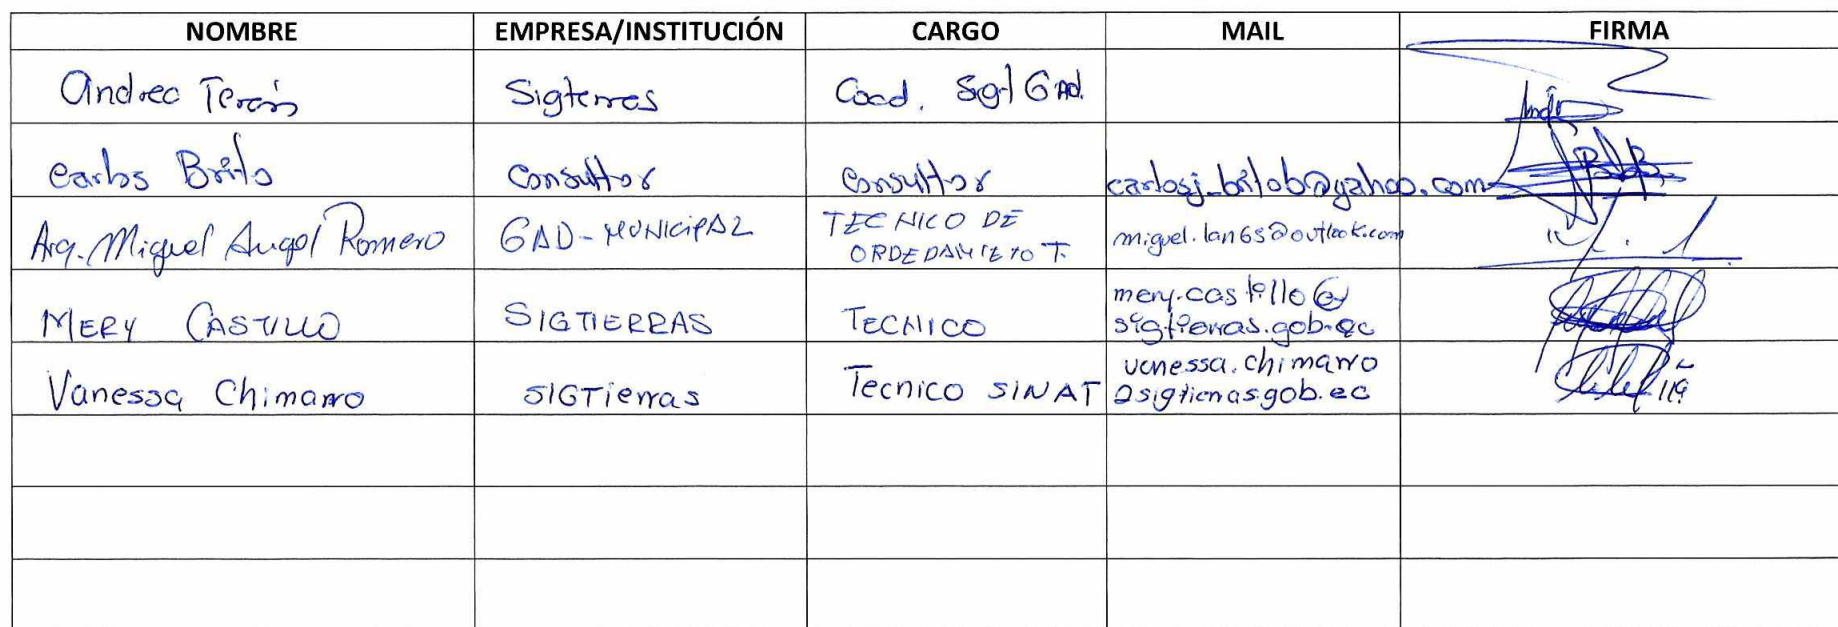 NOMBRE EMPRESA/INSTITUCIÓN CARGO MAIL FIRMA
Andrea Terán Sigtierras Cood. Sig-GAD.
Carlos Brito Consultor Consultor carlosj_britob@yahoo.com
Arq. Miguel Angel Romero GAD-MUNICIPAL TECNICO DE
ORDEDAMIETO T. miguel.lan65@outlook.com
MERY CASTILLO SIGTIERRAS TECNICO mery.castillo@
sigtierras.gob.ec
Vanessa Chimarro SIGTierras Tecnico SINAT vanessa.chimarro
@sigtierras.gob.ec